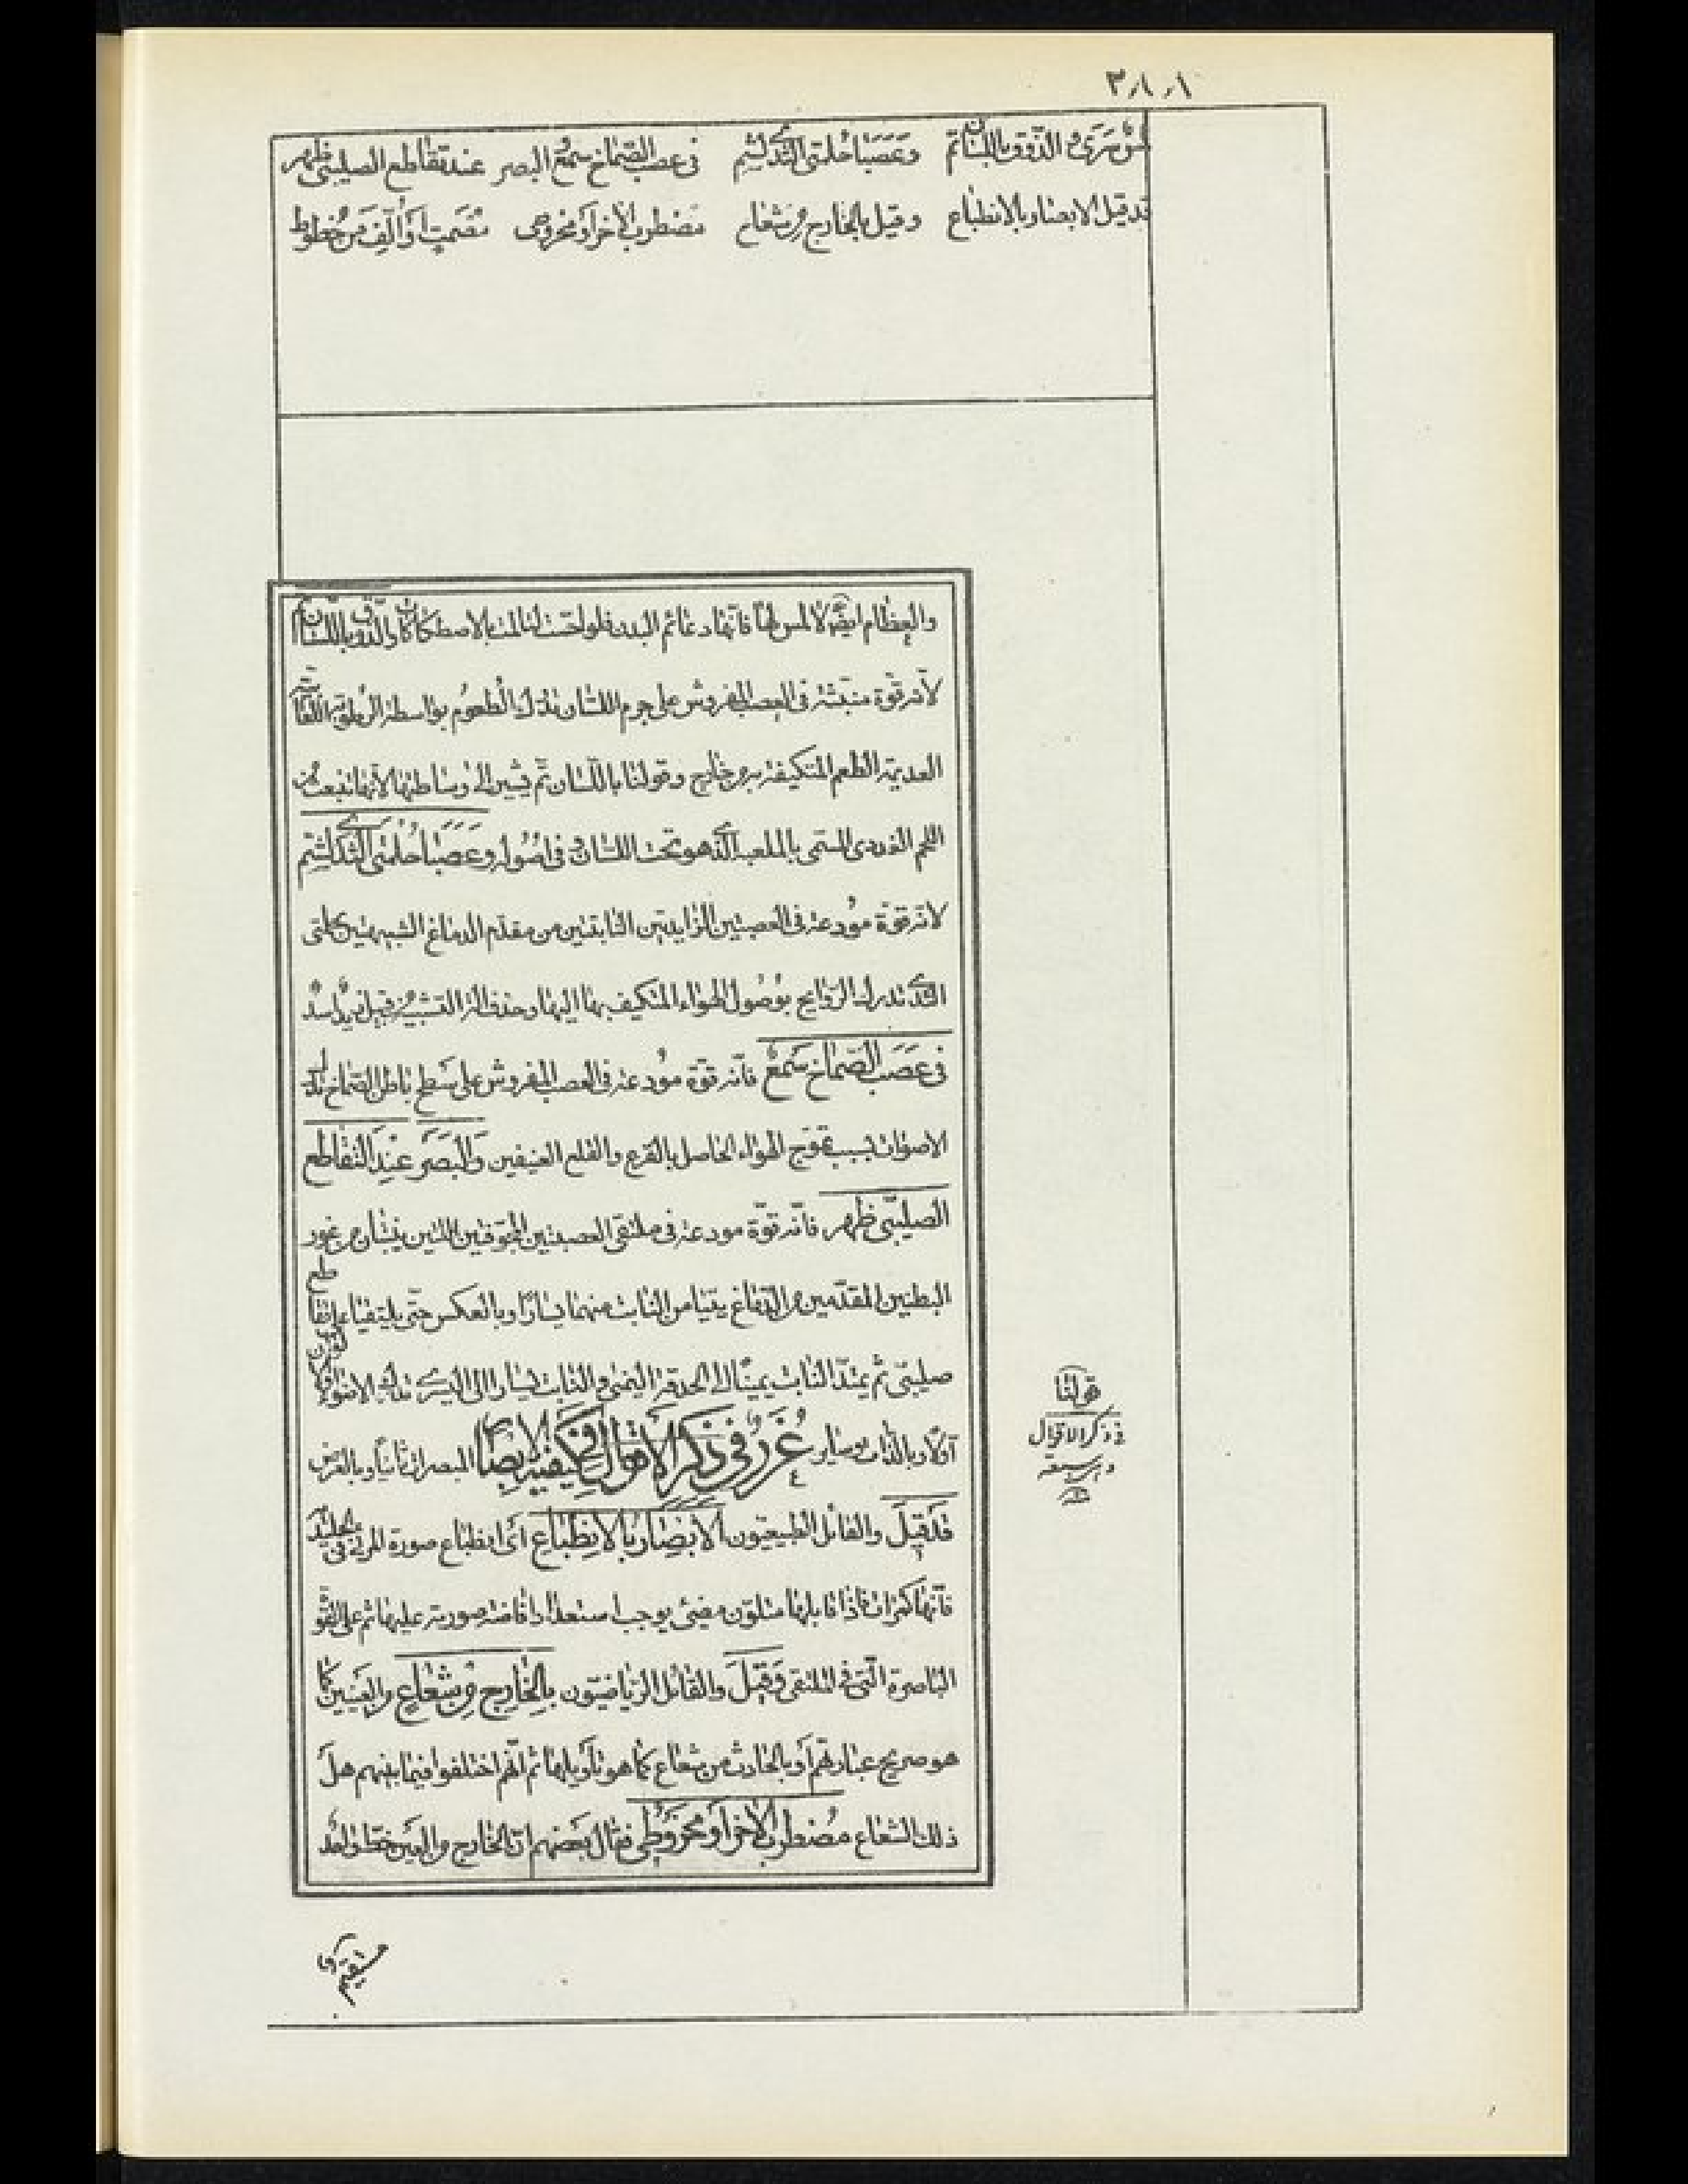 ٣٨٨
والذوق باللسان ثم وعصبا حلمتي الثدي لشم في عصب الصماخ سمع البصر عند تقاطع الصليبي ظهر
قد قيل الابصار بالانطباع وقيل بالخارج من شعاع مضطرب الاخر او مخروطي مصمت او الف من خطوط
والعظام ايضا لا لمس لها فانها دعائم البدن فلو احست لتالمت بالاصطكاكات والذوق باللسان ثم
لانه قوة منبثة في العصب المفروش على جرم اللسان تدرك الطعوم بواسطة الرطوبة اللعابية
العديمة الطعم المتكيفة به من خارج وقولنا باللسان ثم يشير الى وساطتها لانها تنبعث من
اللحم الغددي المسمى بالملعب الذي هو تحت اللسان وفي اصوله وعصبا حلمتي الثدي لشم
لانه قوة مودعة في العصبتين الزايدتين النابتتين من مقدم الدماغ الشبيهتين بحلمتي
الثدي تدرك الروايح بوصول الهواء المتكيف بها اليها وحذف اداة التشبيه من قبيل زيد اسد
في عصب الصماخ سمع فانه قوة مودعة في العصب المفروش على سطح باطن الصماخ تدرك
الاصوات بسبب تموج الهواء الحاصل بالقرع والقلع العنيفين والبصر عند التقاطع
الصليبي ظهر فانه قوة مودعة في ملتقى العصبتين المجوفتين اللتين ينبتان من غور
البطنين المقدمين من الدماغ يتيامن النابت منهما يسارا وبالعكس حتى يلتقيا على تقاطع
صليبي ثم يمتد النابت يمينا الى الحدقة اليمنى والنابت يسارا الى اليسرى تدرك الاضواء والالوان
اولا وبالذات وساير المبصرات ثانيا وبالعرض غرر في ذكر الاقوال في كيفية الابصار
قد قيل والقائل الطبيعيون الابصار بالانطباع اي انطباع صورة المرئي في الجليدية
فانها كمرات فاذا قابلها متلون مضيئ يوجب استعداد افاضة صورته عليها ثم على القوة
الباصرة التي في الملتقى وقيل والقائل الرياضيون بالخارج من شعاع من العينين كما
هو صريح عبارتهم او بالحادث من شعاع كما هو تأويلها ثم انهم اختلفوا فيما بينهم هل
ذلك الشعاع مضطرب الاخر او مخروطي فقال بعضهم ان الخارج من العين خط واحد
قولنا
في ذكر الاقوال
مستقيم